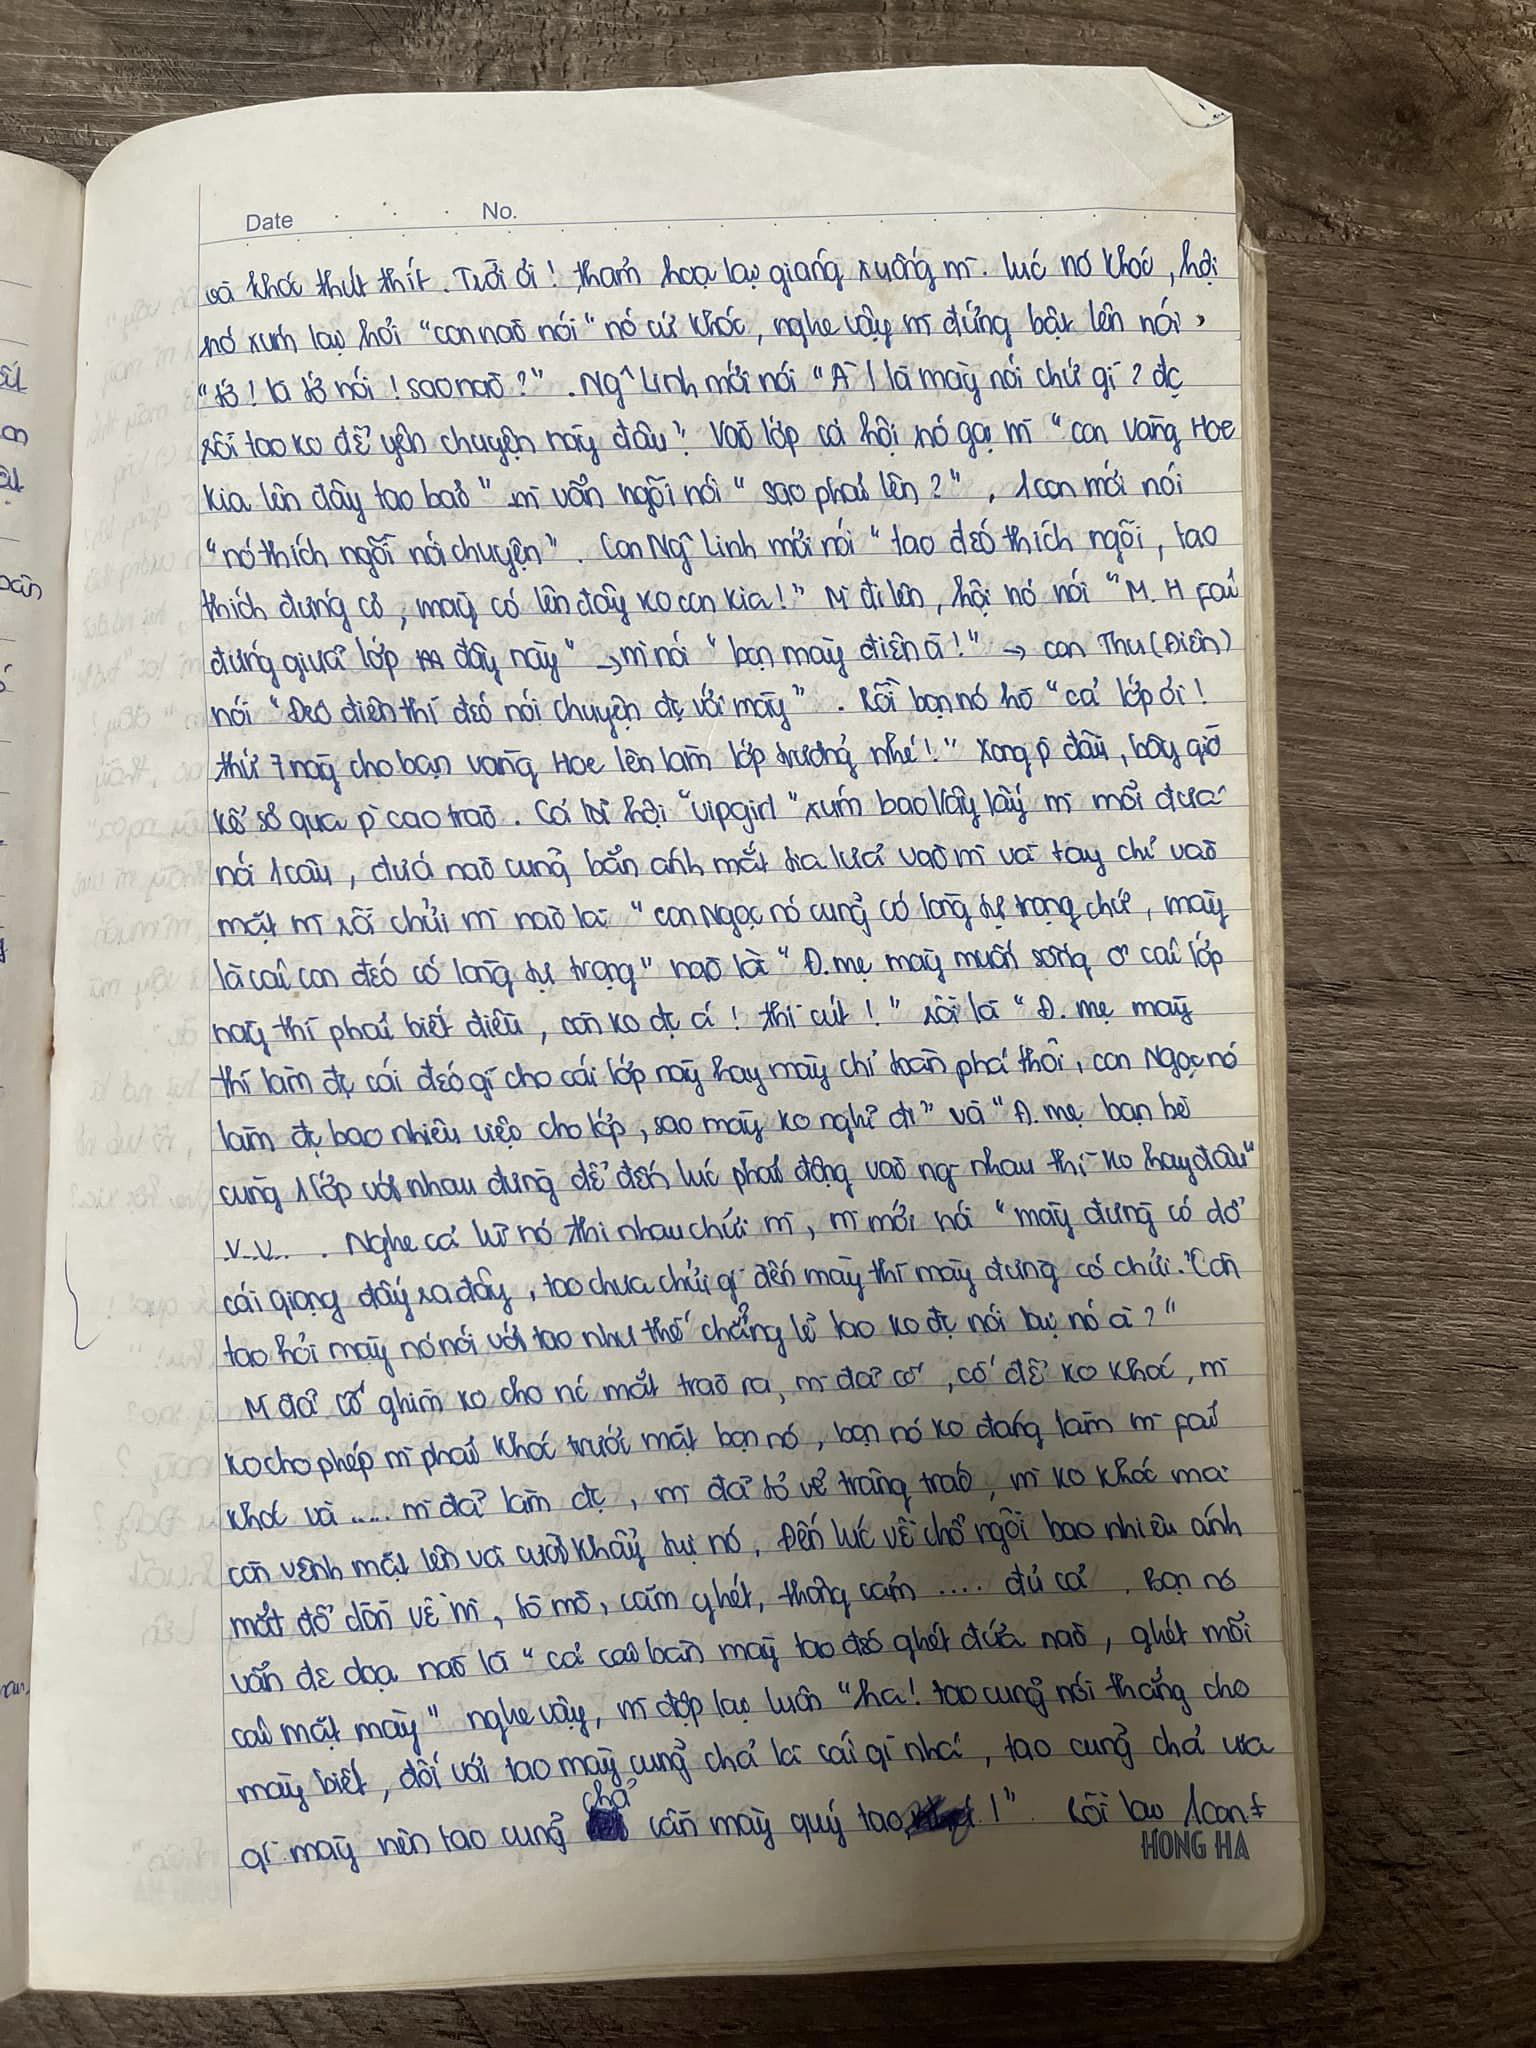 Date No.
và khóc thút thít. Trời ơi! thảm hoạ lại giáng xuống mì. lúc nó khóc, hội
nó xúm lại hỏi "con nào nói" nó cứ khóc, nghe vậy mì đứng bật lên nói
"tớ! là tớ nói! sao nào?". Ng~ Linh mới nói "À! là mày nói chứ gì? đc
rồi tao ko để yên chuyện này đâu". Vào lớp cả hội nó gọi mì "con vàng Hoe
kia lên đây tao bảo" mì vẫn ngồi nói "sao phải lên?", 1 con mới nói
"nó thích ngồi nói chuyện". Con Ng~ Linh mới nói "tao đéo thích ngồi, tao
thích đứng cơ, mày có lên đây ko con kia!" Mì đi lên, hội nó nói "M. H fải
đứng giữa lớp đây này" → mì nói "bọn mày điên à!" → con Thu (Điên)
nói "Đéo điên thì đéo nói chuyện đc với mày". Rồi bọn nó hô "cả lớp ơi!
thứ 7 này cho bạn vàng Hoe lên làm lớp trưởng nhé!" Xong p̀ đầu, bây giờ
kể sơ qua p̀ cao trào. Cả lũ hội "vipgirl" xúm bao vây lấy mì mỗi đứa
nói 1 câu, đứa nào cũng bắn ánh mắt tia lửa vào mì và tay chỉ vào
mặt mì rồi chửi mì nào là "con Ngọc nó cũng có lòng tự trọng chứ, mày
là cái con đéo có lòng tự trọng" nào là "Đ.mẹ mày muốn sống ở cái lớp
này thì phải biết điều, còn ko đc á! thì cút!" rồi là "Đ. mẹ mày
thì làm đc cái đéo gì cho cái lớp này hay mày chỉ toàn phá thôi, con Ngọc nó
làm đc bao nhiêu việc cho lớp, sao mày ko nghĩ đi" và "Đ. mẹ bạn bè
cùng 1 lớp với nhau đừng để đến lúc phải động vào ng~ nhau thì ko hay đâu"
v..v... . Nghe cả lũ nó thi nhau chửi mì, mì mới nói "mày đừng có dở
cái giọng đấy ra đây, tao chưa chửi gì đến mày thì mày đừng có chửi. Còn
tao hỏi mày nó nói với tao như thế chẳng lẽ tao ko đc nói lại nó à?"
Mì đã cố ghìm ko cho nc mắt trào ra, mì đã cố, cố để ko khóc, mì
ko cho phép mì phải khóc trước mặt bọn nó, bọn nó ko đáng làm mì fải
khóc và ..... mì đã làm đc, mì đã tỏ vẻ tráng tráo, mì ko khóc mà
còn vênh mặt lên và cười khẩy tụi nó. Đến lúc về chỗ ngồi bao nhiêu ánh
mắt đổ dồn về mì, tò mò, căm ghét, thông cảm .... đủ cả. Bọn nó
vẫn đe doạ nào là "cả cái bàn mày tao đéo ghét đứa nào, ghét mỗi
cái mặt mày" nghe vậy, mì đập lại luôn "ha! tao cũng nói thẳng cho
mày biết, đối với tao mày cũng chả là cái gì nhá, tao cũng chả ưa
gì mày nên tao cũng chả cần mày quý tao!" Rồi lại 1 con
HONG HA